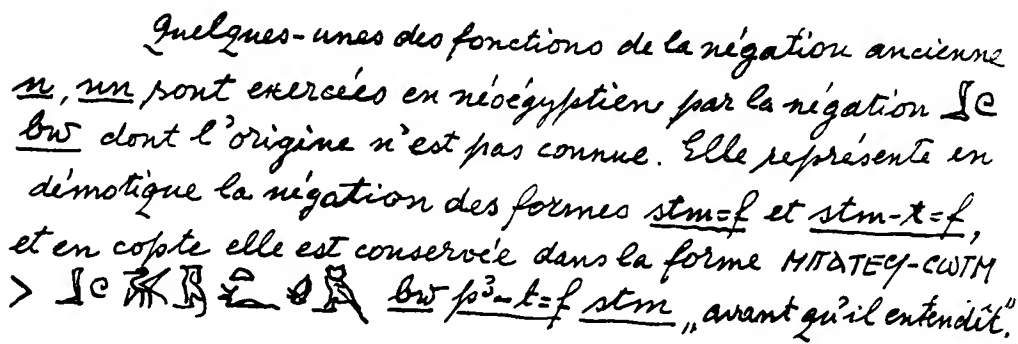 Quelques-unes des fonctions de la négation ancienne
n, nn sont exercées en néoégyptien par la négation 𓃀𓏲
bw dont l'origine n'est pas connue. Elle représente en
démotique la négation des formes stm=f et stm-t=f,
et en copte elle est conservée dans la forme ⲘⲠⲀⲦⲈϤ-ⲤⲰⲦⲘ
> 𓃀𓏲 bw p³-t=f stm „avant qu'il entendît".